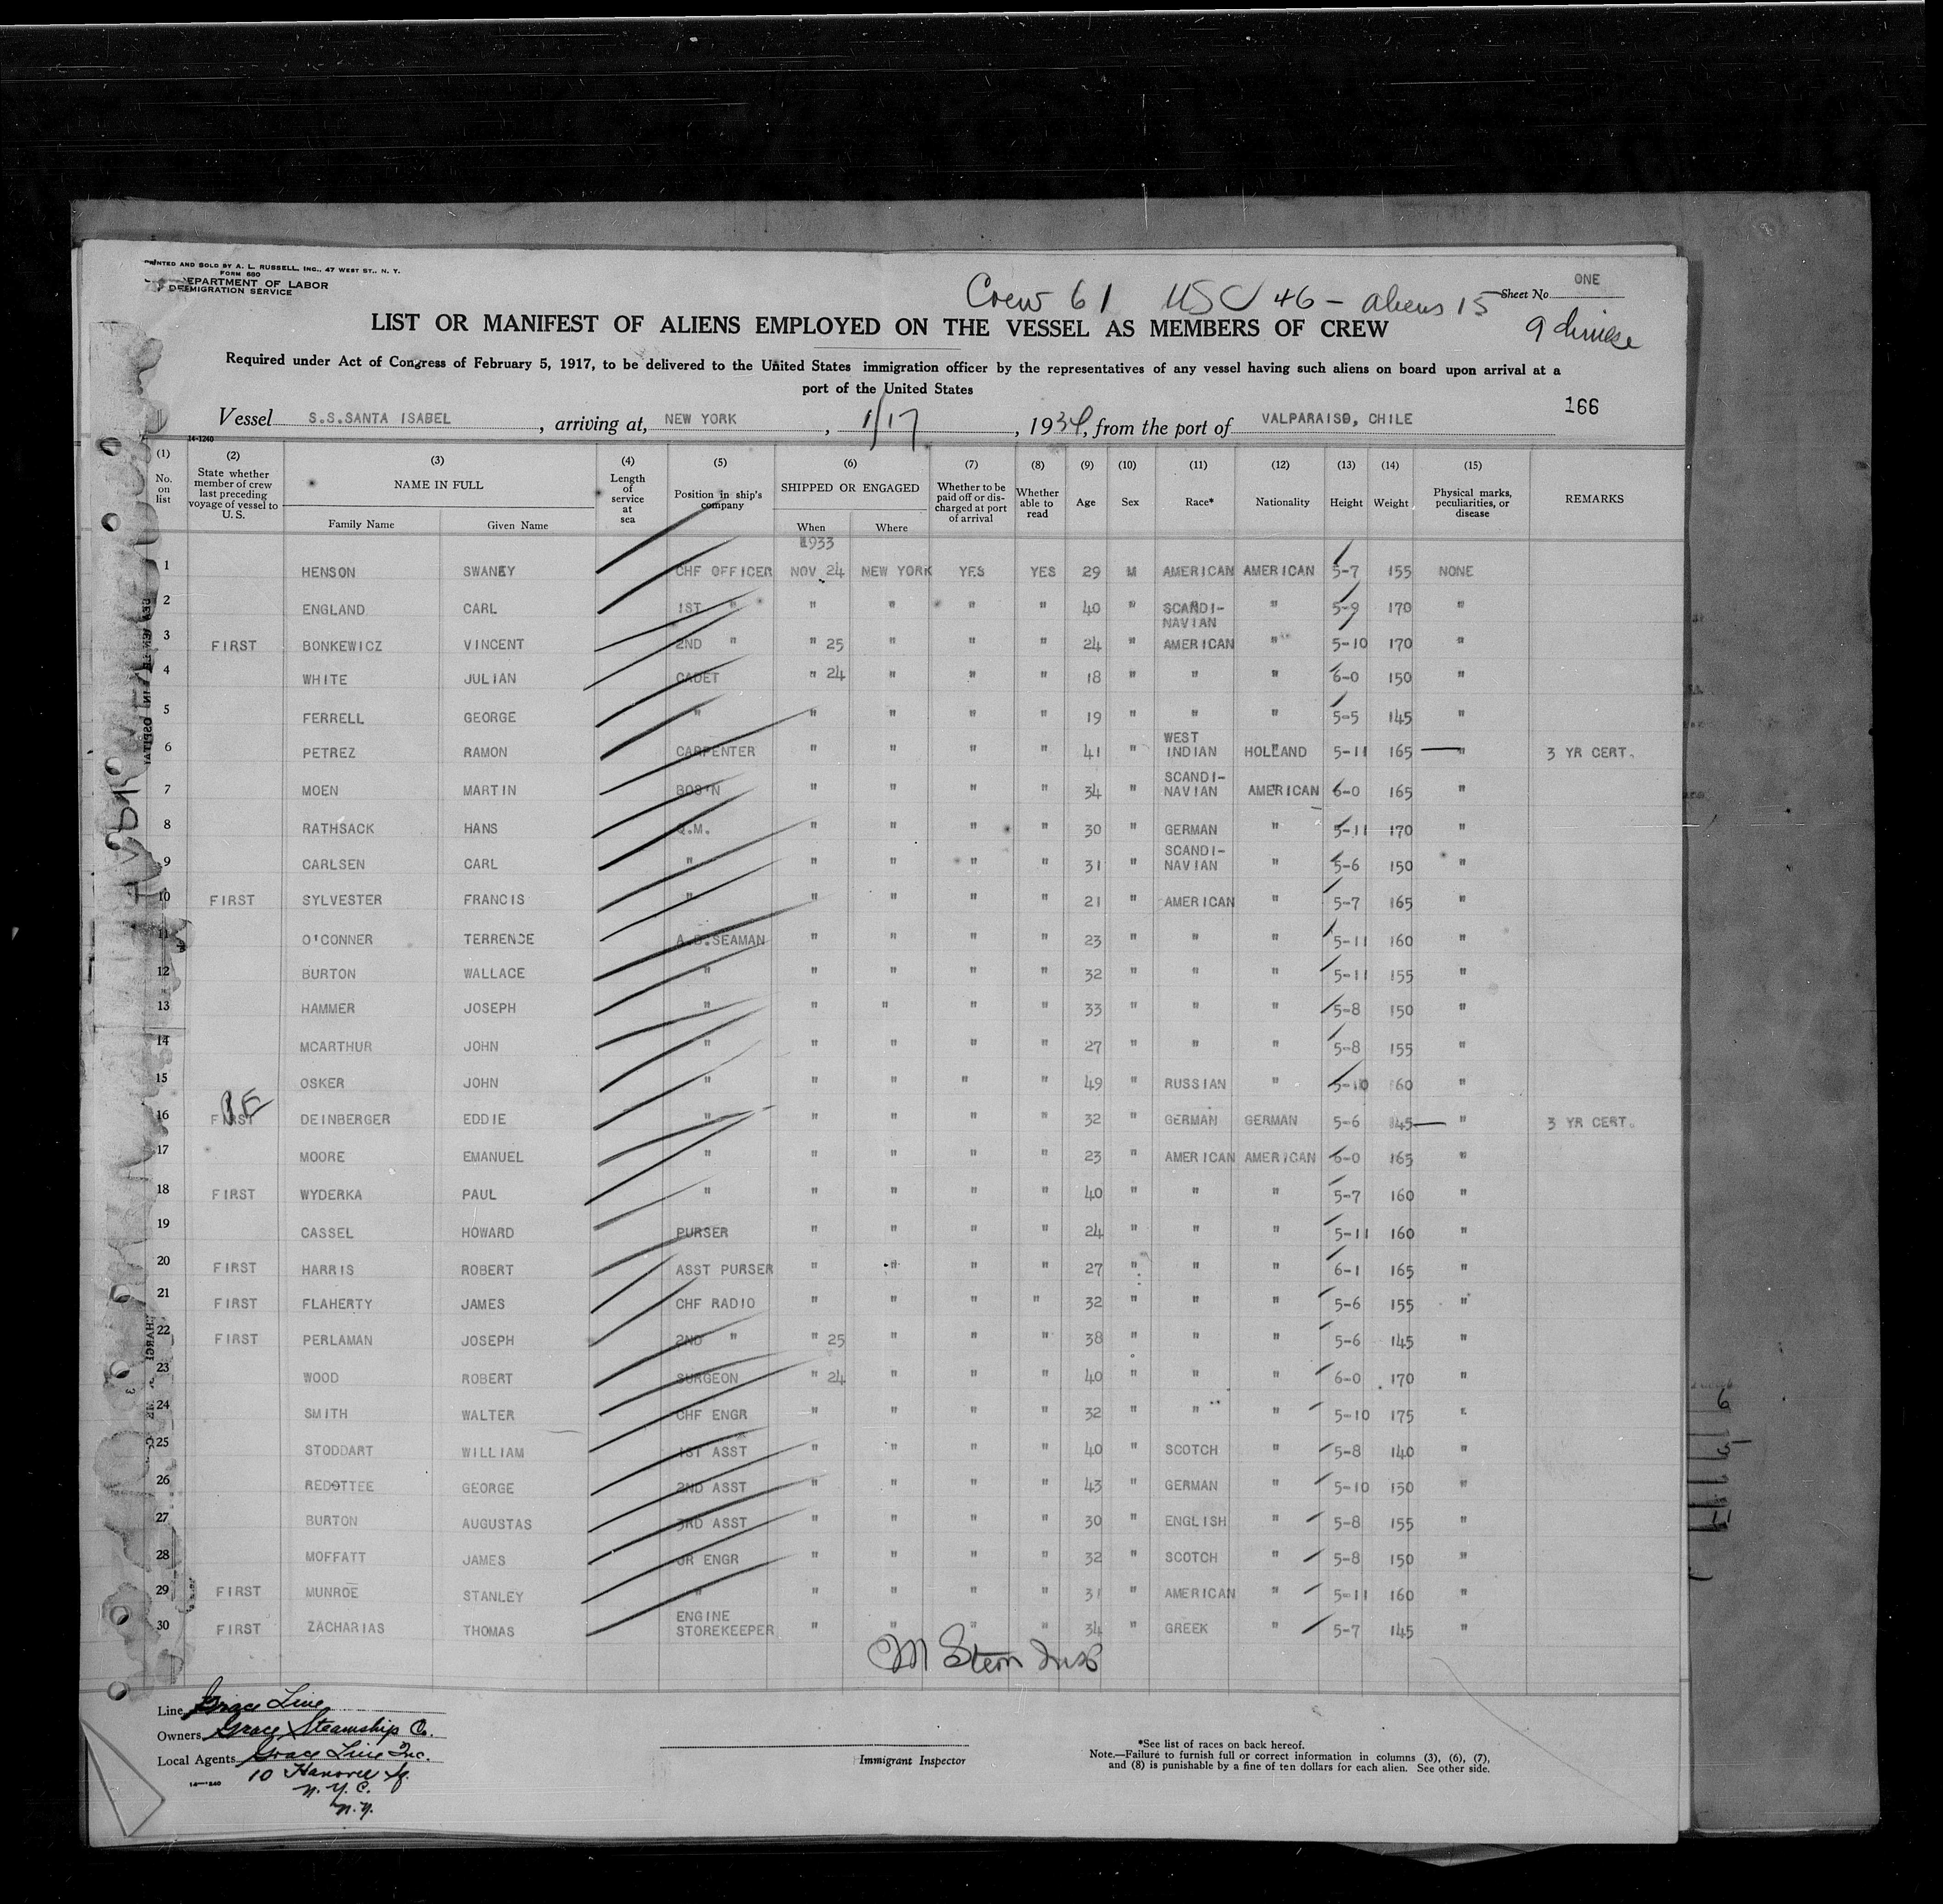 PRINTED AND SOLD BY A. L. RUSSELL, INC., 47 WEST ST., N. Y.
FORM 680
DEPARTMENT OF LABOR
IMMIGRATION SERVICE
Crew 61 USC 46 - aliens 15
Sheet No. ONE
9 chinese
LIST OR MANIFEST OF ALIENS EMPLOYED ON THE VESSEL AS MEMBERS OF CREW
Required under Act of Congress of February 5, 1917, to be delivered to the United States immigration officer by the representatives of any vessel having such aliens on board upon arrival at a
port of the United States
166
Vessel S.S.SANTA ISABEL, arriving at, NEW YORK, 1/17, 1934, from the port of VALPARAISO, CHILE
14-1240
(1) No. on list (2) State whether member of crew last preceding voyage of vessel to U. S. (3) NAME IN FULL Family Name Given Name (4) Length of service at sea (5) Position in ship's company (6) SHIPPED OR ENGAGED When Where (7) Whether to be paid off or discharged at port of arrival (8) Whether able to read (9) Age (10) Sex (11) Race* (12) Nationality (13) Height (14) Weight (15) Physical marks, peculiarities, or disease REMARKS
1933
1 HENSON SWANEY CHF OFFICER NOV 24 NEW YORK YES YES 29 M AMERICAN AMERICAN 5-7 155 NONE
2 ENGLAND CARL 1ST " " " " " 40 " SCANDI-NAVIAN " 5-9 170 "
3 FIRST BONKEWICZ VINCENT 2ND " " 25 " " " 24 " AMERICAN " 5-10 170 "
4 WHITE JULIAN CADET " 24 " " " 18 " " " 6-0 150 "
5 FERRELL GEORGE " " " " " 19 " " " 5-5 145 "
6 PETREZ RAMON CARPENTER " " " " 41 " WEST INDIAN HOLLAND 5-11 165 " 3 YR CERT.
7 MOEN MARTIN BOS'N " " " " 34 " SCANDI-NAVIAN AMERICAN 6-0 165 "
8 RATHSACK HANS Q.M. " " " " 30 " GERMAN " 5-11 170 "
9 CARLSEN CARL " " " " " 31 " SCANDI-NAVIAN " 5-6 150 "
10 FIRST SYLVESTER FRANCIS " " " " " 21 " AMERICAN " 5-7 165 "
11 O'CONNER TERRENCE A.B.SEAMAN " " " " 23 " " " 5-11 160 "
12 BURTON WALLACE " " " " " 32 " " " 5-11 155 "
13 HAMMER JOSEPH " " " " " 33 " " " 5-8 150 "
14 MCARTHUR JOHN " " " " " 27 " " " 5-8 155 "
15 OSKER JOHN " " " " " 49 " RUSSIAN " 5-10 160 "
16 FIRST DEINBERGER EDDIE " " " " " 32 " GERMAN GERMAN 5-6 145 " 3 YR CERT.
17 MOORE EMANUEL " " " " " 23 " AMERICAN AMERICAN 6-0 165 "
18 FIRST WYDERKA PAUL " " " " " 40 " " " 5-7 160 "
19 CASSEL HOWARD PURSER " " " " 24 " " " 5-11 160 "
20 FIRST HARRIS ROBERT ASST PURSER " " " " 27 " " " 6-1 165 "
21 FIRST FLAHERTY JAMES CHF RADIO " " " " 32 " " " 5-6 155 "
22 FIRST PERLAMAN JOSEPH 2ND " " 25 " " " 38 " " " 5-6 145 "
23 WOOD ROBERT SURGEON " 24 " " " 40 " " " 6-0 170 "
24 SMITH WALTER CHF ENGR " " " " 32 " " " 5-10 175 "
25 STODDART WILLIAM 1ST ASST " " " " 40 " SCOTCH " 5-8 140 "
26 REDOTTEE GEORGE 2ND ASST " " " " 43 " GERMAN " 5-10 150 "
27 BURTON AUGUSTAS 3RD ASST " " " " 30 " ENGLISH " 5-8 155 "
28 MOFFATT JAMES JR ENGR " " " " 32 " SCOTCH " 5-8 150 "
29 FIRST MUNROE STANLEY " " " " " 31 " AMERICAN " 5-11 160 "
30 FIRST ZACHARIAS THOMAS ENGINE STOREKEEPER " " " " 34 " GREEK " 5-7 145 "
M Stern Insp
Line Grace Line
Owners Grace Steamship Co.
Local Agents Grace Line Inc.
10 Hanover Sq.
N.Y.C.
N.Y.
14-1240
Immigrant Inspector
*See list of races on back hereof.
Note.—Failure to furnish full or correct information in columns (3), (6), (7),
and (8) is punishable by a fine of ten dollars for each alien. See other side.